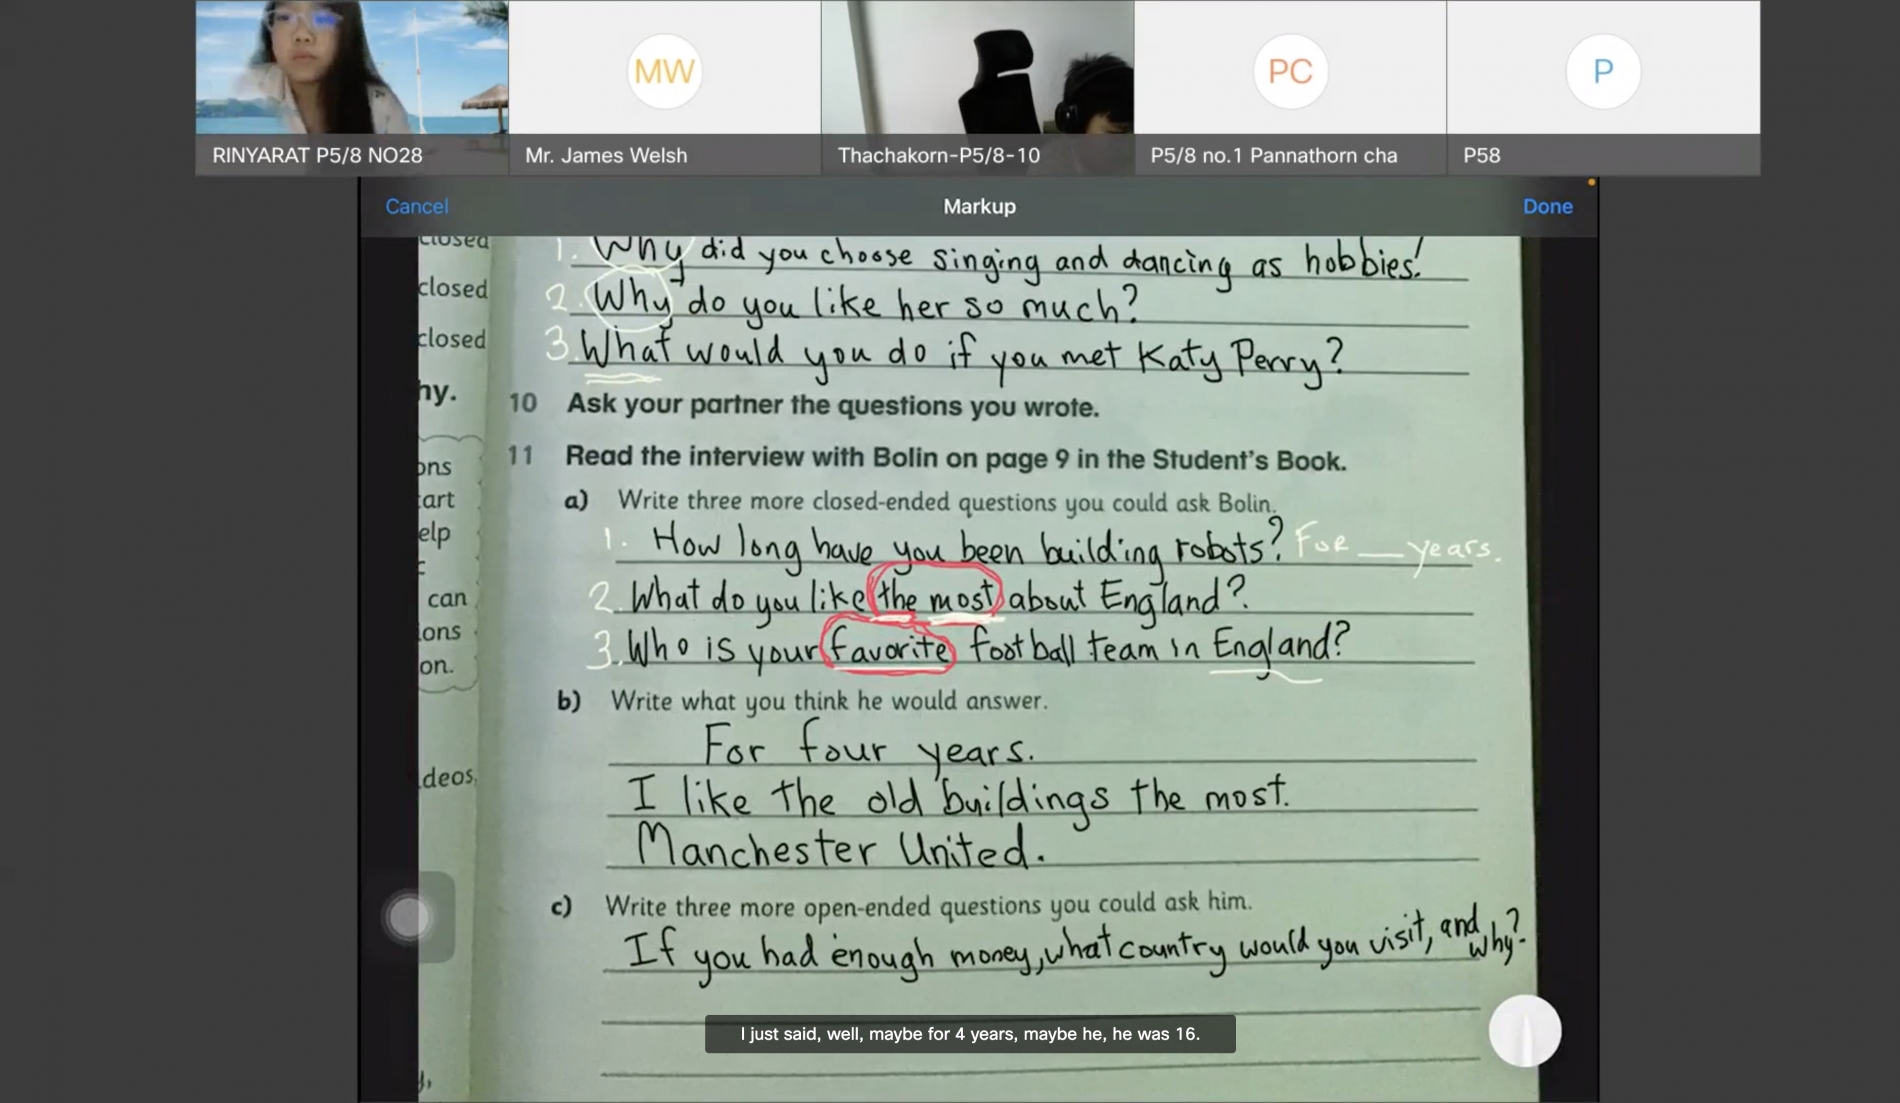 MW
PC
P
RINYARAT P5/8 NO28
Mr. James Welsh
Thachakorn-P5/8-10
P5/8 no.1 Pannathorn cha
P58
Cancel
Markup
Done
closed
closed
closed
hy.
ons
art
elp
can
ions
on.
deos,
1. Why did you choose singing and dancing as hobbies!
2. Why do you like her so much?
3. What would you do if you met Katy Perry?
10 Ask your partner the questions you wrote.
11 Read the interview with Bolin on page 9 in the Student's Book.
a) Write three more closed-ended questions you could ask Bolin.
1. How long have you been building robots? For __ years.
2. What do you like the most about England?
3. Who is your favorite football team in England?
b) Write what you think he would answer.
For four years.
I like the old buildings the most.
Manchester United.
c) Write three more open-ended questions you could ask him.
If you had enough money, what country would you visit, and why?
I just said, well, maybe for 4 years, maybe he, he was 16.